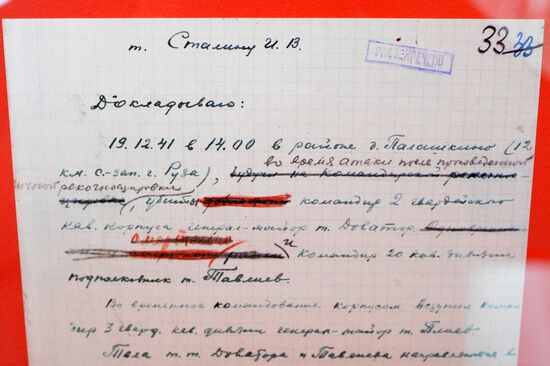 33 33
т. Сталину И. В.
РАССЕКРЕЧЕНО
Докладываю:
19.12.41 в 14.00 в районе д. Палашкино (12
во время атаки после произведенной
км. с.-зап. г. Руза), будучи на командирской рекогно-
рекогносцировки
, убиты командир 2 гвардейского
кав. корпуса генерал-майор т. Доватор
смертельно и
командир 20 кав. дивизии
подполковник т. Тавлиев.
Во временное командование корпусом вступил коман-
дир 3 гвард. кав. дивизии генерал-майор т. Плиев.
Тела т.т. Доватора и Тавлиева направляются в